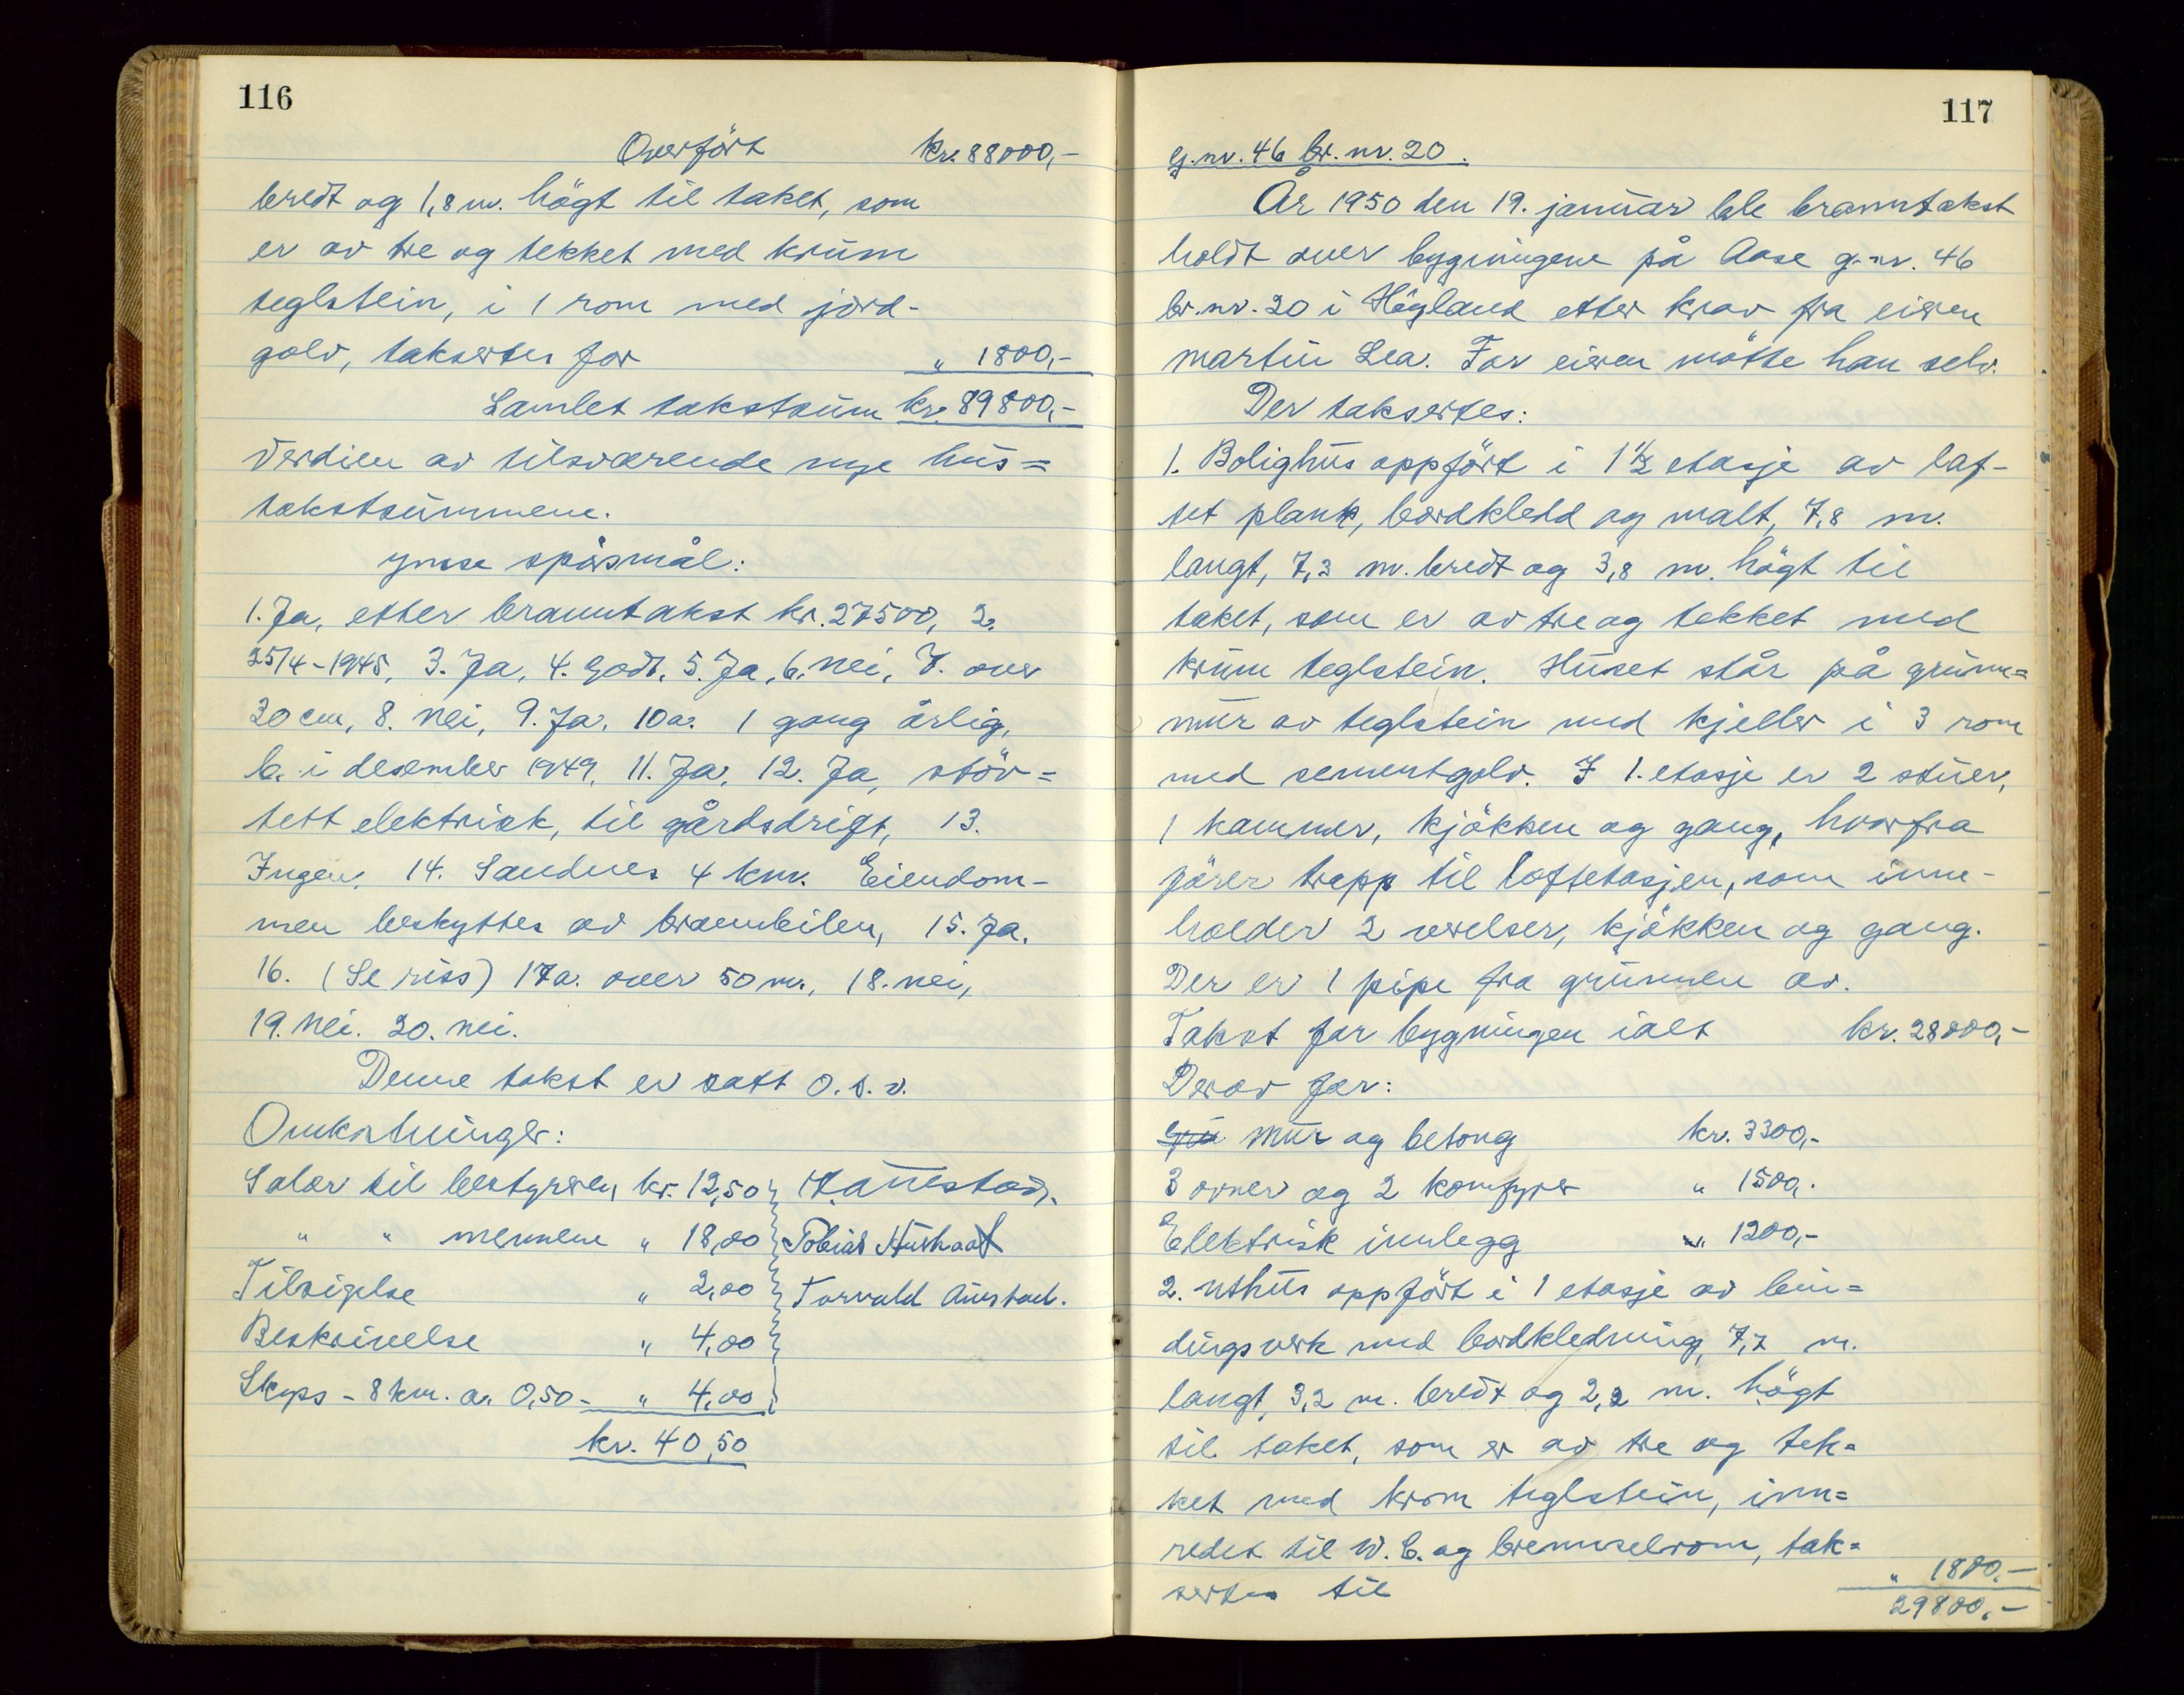 116
Overfört kr. 88000,-
bredt og 1,8 m. högt til taket, som
er av tre og tekket med krum
teglstein, i 1 rom med jord-
golv, taksertes for " 1800,-
Samlet takstsum kr. 89800,-
Verdien av tilsvarende nye hus=
takstsummene.
ymse spörsmål:
1. Ja, etter branntakst kr. 27500, 2.
25/4-1945, 3. Ja, 4. Godt, 5. Ja, 6. nei, 7. over
30 cm, 8. nei, 9. Ja. 10a. 1 gang årlig,
b. i desember 1949, 11. Ja, 12. Ja, stöv=
tett elektrisk, til gårdsdrift, 13.
Ingen. 14. Sandnes 4 km. Eiendom-
men beskyttes av brannbilen, 15. Ja.
16. (Se riss) 17a. over 50 m., 18. nei,
19. nei. 20. nei.
Denne takst er satt o.s.v.
Omkostninger:
Salær til bestyreren kr. 12,50
" " mennene " 18,00 Tobias
Tilsigelse " 2,00 Torvald Aurstad.
Beskrivelse " 4,00
Skyss - 8 km. a. 0,50 - " 4,00
kr. 40,50
117
g.nr. 46 br.nr. 20.
År 1950 den 19. januar ble branntakst
holdt over bygningene på Aase g.nr. 46
br.nr. 20 i Högland etter krav fra eieren
Martin Lea. For eieren mötte han selv.
Der taksertes:
1. Bolighus oppfört i 1½ etasje av laf-
tet plank, bordkledd og malt, 7,8 m.
langt, 7,3 m. bredt og 3,8 m. högt til
taket, som er av tre og tekket med
krum teglstein. Huset står på grunn=
mur av teglstein med kjeller i 3 rom
med sementgolv. I 1. etasje er 2 stuer,
1 kammer, kjökken og gang, hvorfra
förer trapp til loftetasjen, som inne-
holder 2 værelser, kjökken og gang.
Der er 1 pipe fra grunnen av.
Takst for bygningen ialt kr. 28000,-
Derav for:
Gru mur og betong kr. 3300,-
3 ovner og 2 komfyrer " 1500,-
Elektrisk innlegg " 1200,-
2. Uthus oppfört i 1 etasje av bin=
dingsverk med bordkledning, 7,7 m.
langt, 3,2 m. bredt og 2,2 m. högt
til taket, som er av tre og tek=
ket med krom teglstein, inn=
redet til W.C. og brenselrom, tak=
sertes til " 1800,-
29800,-